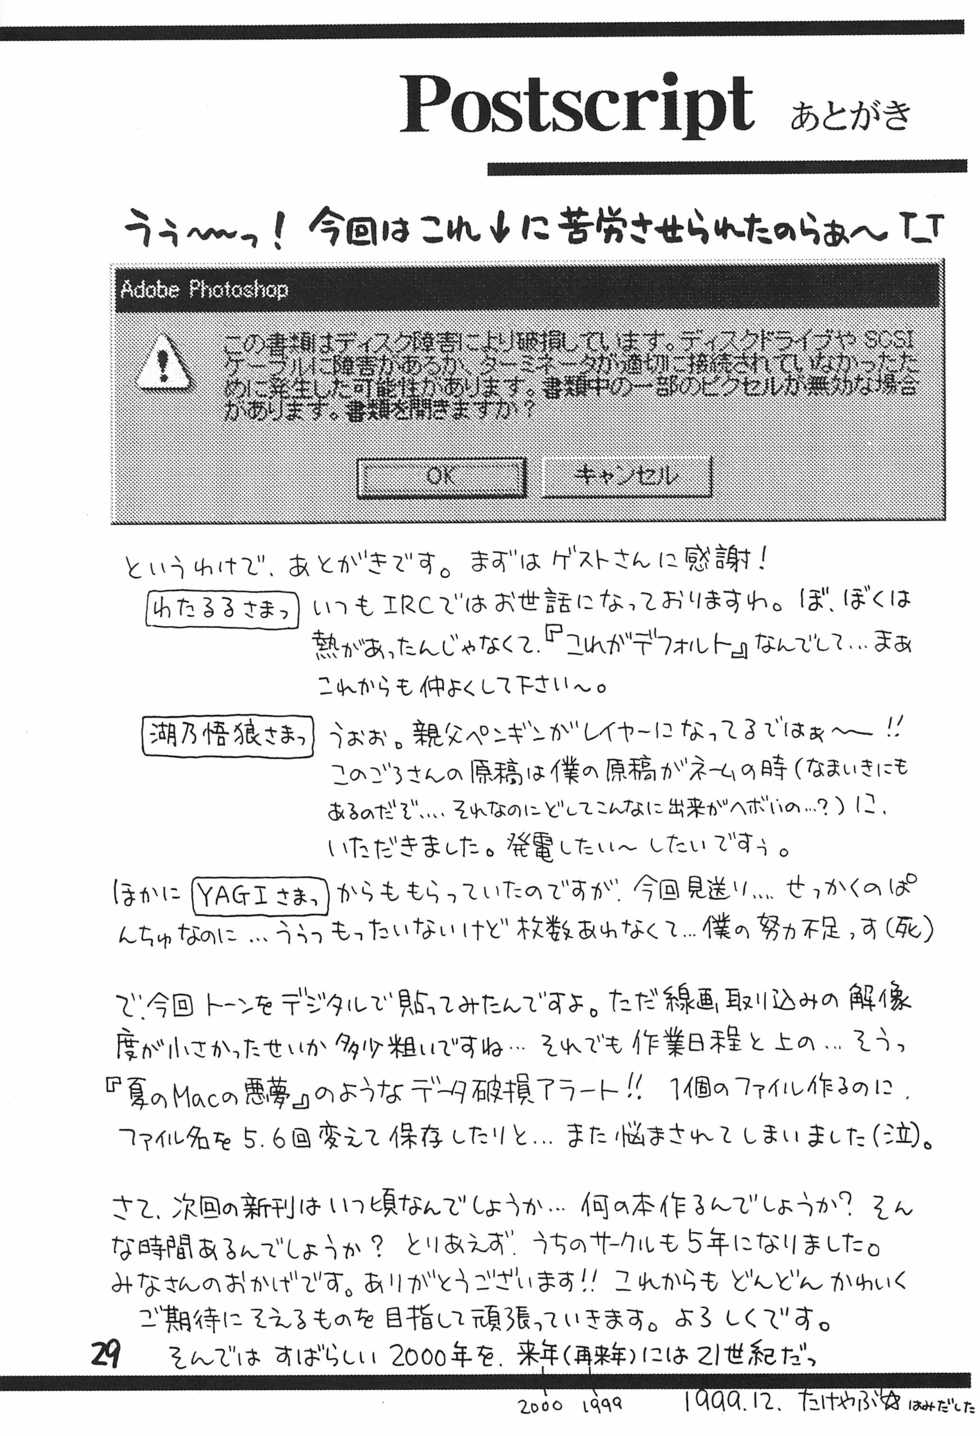 Postscript あとがき
うぅ〜〜っ! 今回はこれ↓に苦労させられたのらぁ〜 T_T
Adobe Photoshop
この書類はディスク障害により破損しています。ディスクドライブや SCSI
ケーブルに障害があるか、ターミネータが適切に接続されていなかったた
めに発生した可能性があります。書類中の一部のピクセルが無効な場合
があります。書類を開きますか?
OK キャンセル
というわけで、あとがきです。まずはゲストさんに感謝!
わたるるさまっ いつもIRCではお世話になっておりますわ。ぼ、ぼくは
熱があったんじゃなくて、『これがデフォルト』なんでして...まぁ
これからも仲よくして下さい〜。
湖乃悟狼さまっ うぉぉ。親父ペンギンがレイヤーになってるではぁ〜〜!!
このごろさんの原稿は僕の原稿がネームの時(なまいきにも
あるのだぞ....それなのにどしてこんなに出来がヘボいの...?)に、
いただきました。発電したい〜したいですぅ。
ほかに YAGIさまっ からももらっていたのですが、今回見送り.... せっかくのぱ
んちゅなのに...ううっもったいないけど枚数あわなくて...僕の努力不足っす(死)
で、今回トーンをデジタルで貼ってみたんですよ。ただ線画取り込みの解像
度が小さかったせいか多少粗いですね... それでも作業日程と上の...そうっ
『夏のMacの悪夢』のようなデータ破損アラート!! 1個のファイル作るのに、
ファイル名を5.6回変えて保存したりと... また悩まされてしまいました(泣)。
さて、次回の新刊はいつ頃なんでしょうか... 何の本作るんでしょうか? そん
な時間あるんでしょうか? とりあえず、うちのサークルも5年になりました。
みなさんのおかげです。ありがとうございます!! これからもどんどんかわいく
ご期待にそえるものを目指して頑張っていきます。よろしくです。
29 そんではすばらしい2000年を、来年(再来年)には21世紀だっ
2000 1999 1999.12. たけやぶ☆ はみだした